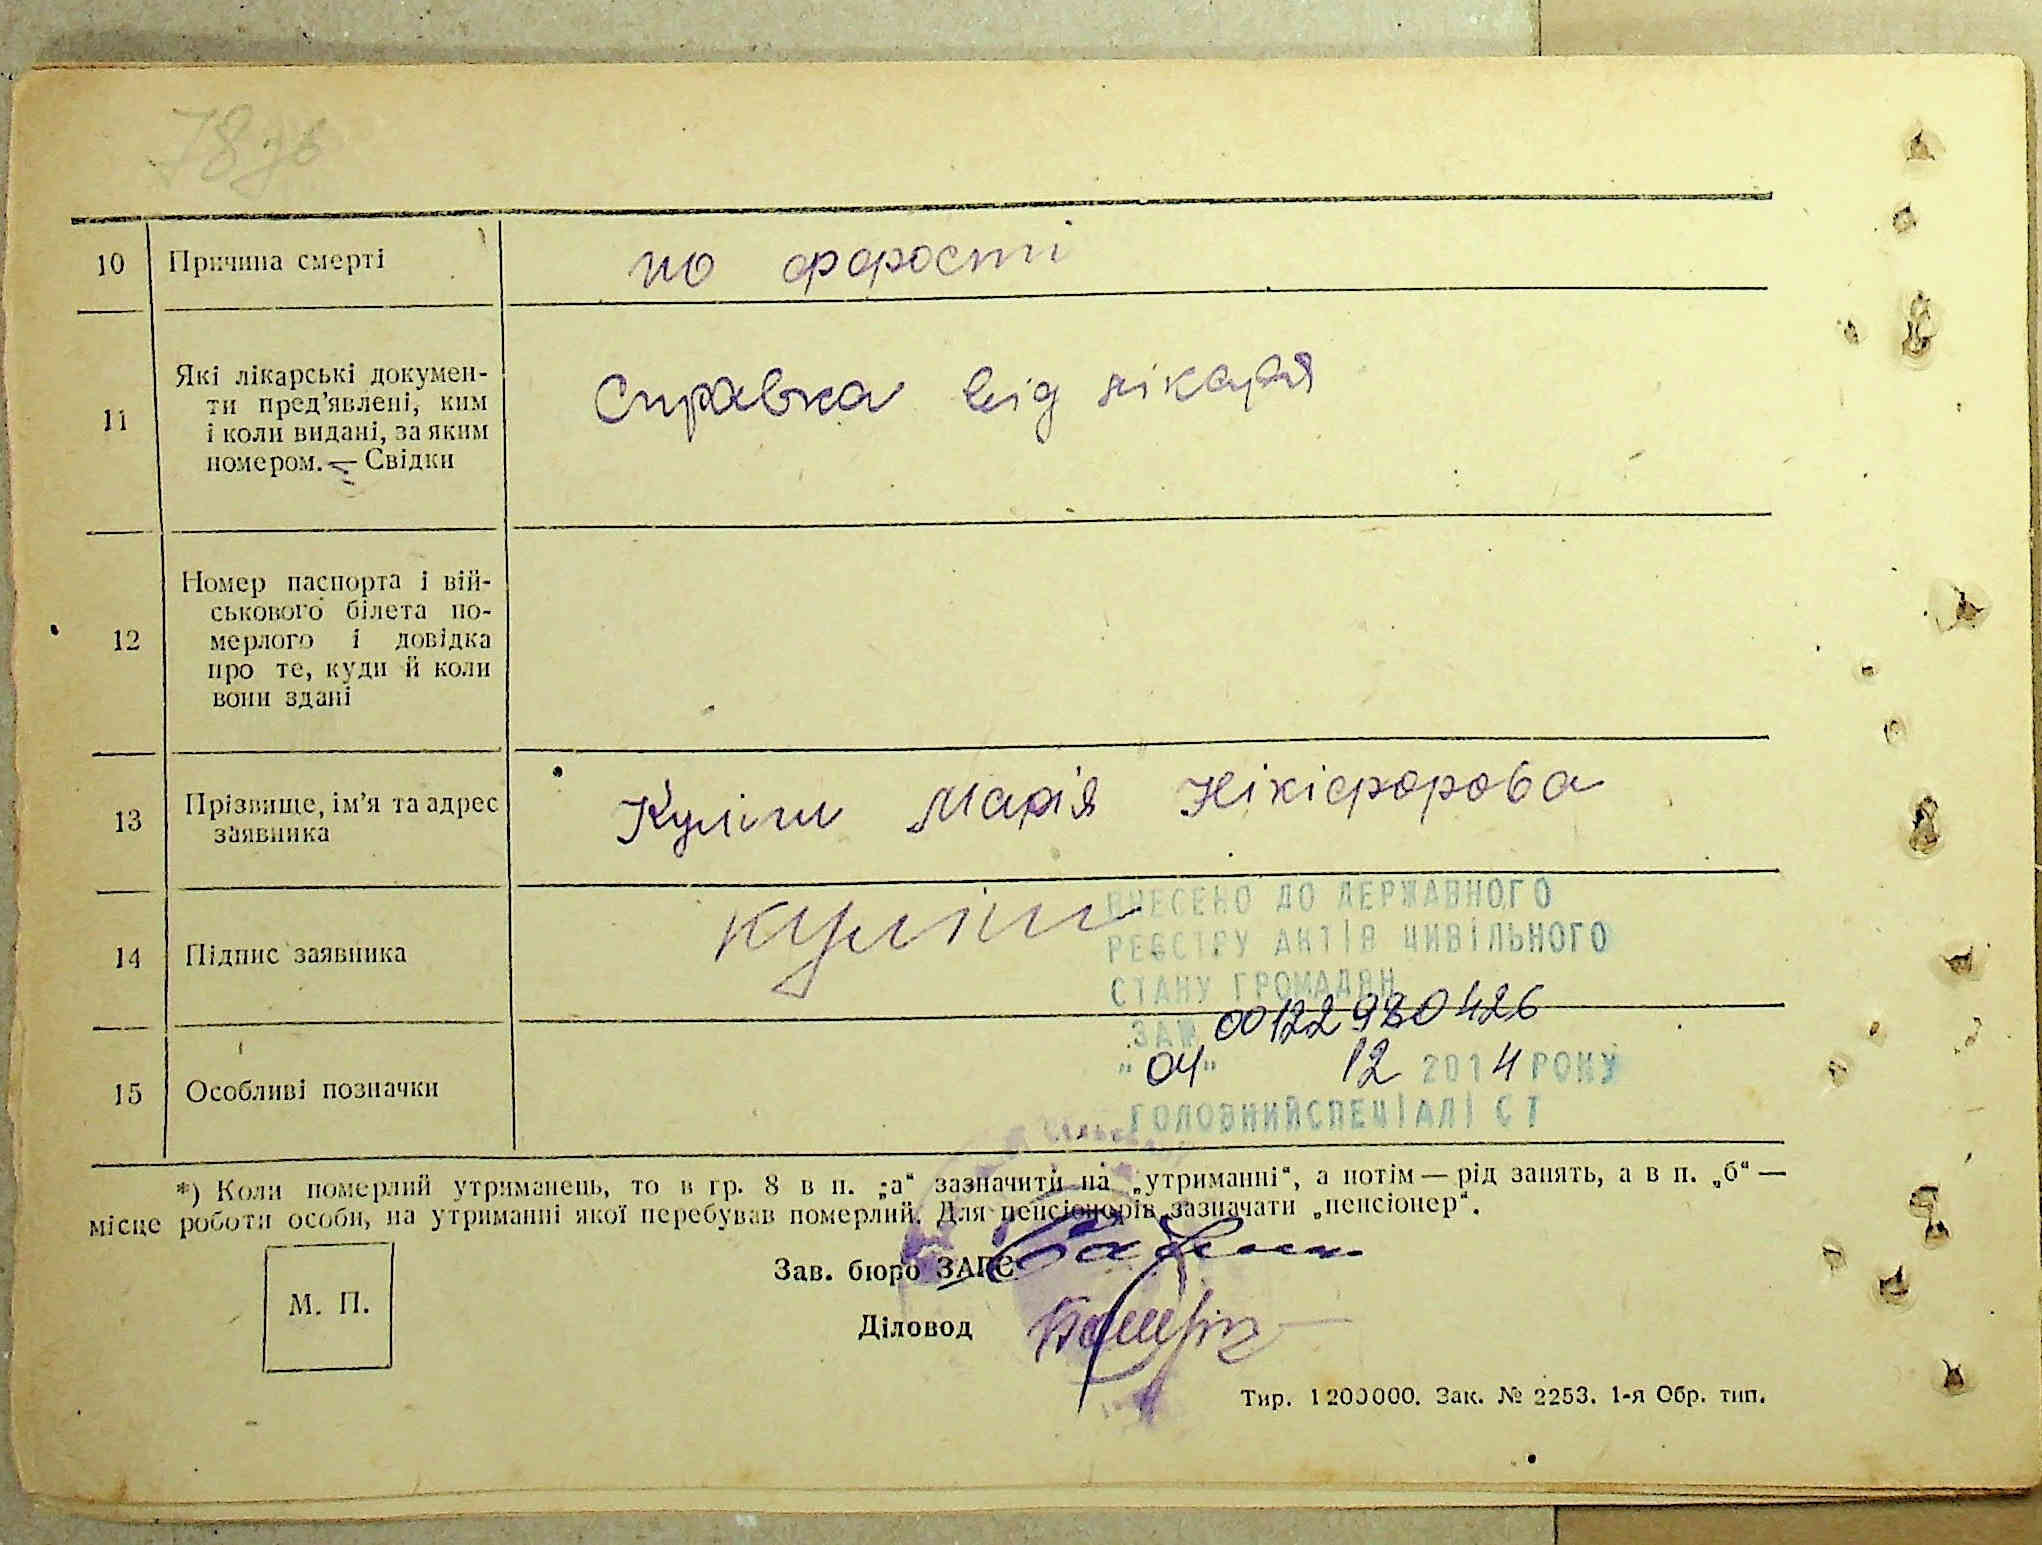 78зв
10 Причина смерті по форості
11 Які лікарські докумен-
ти пред'явлені, ким
і коли видані, за яким
номером. — Свідки
Справка від лікаря
12 Номер паспорта і вій-
ськового білета по-
мерлого і довідка
про те, куди й коли
вони здані
13 Прізвище, ім'я та адрес
заявника
Куліш Марія Нікіфорова
14 Підпис заявника Куліш
ВНЕСЕНО ДО ДЕРЖАВНОГО
РЕЄСТРУ АКТІВ ЦИВІЛЬНОГО
СТАНУ ГРОМАДЯН
ЗА № 00122980426
"04" 12 2014 РОКУ
ГОЛОВНИЙ СПЕЦІАЛІСТ
15 Особливі позначки
*) Коли померлий утриманець, то в гр. 8 в п. „а“ зазначити на „утриманні“, а потім — рід занять, а в п. „б“ —
місце роботи особи, на утриманні якої перебував померлий. Для пенсіонерів зазначати „пенсіонер“.
Зав. бюро ЗАГС
М. П.
Діловод
Тир. 1200000. Зак. № 2253. 1-я Обр. тип.